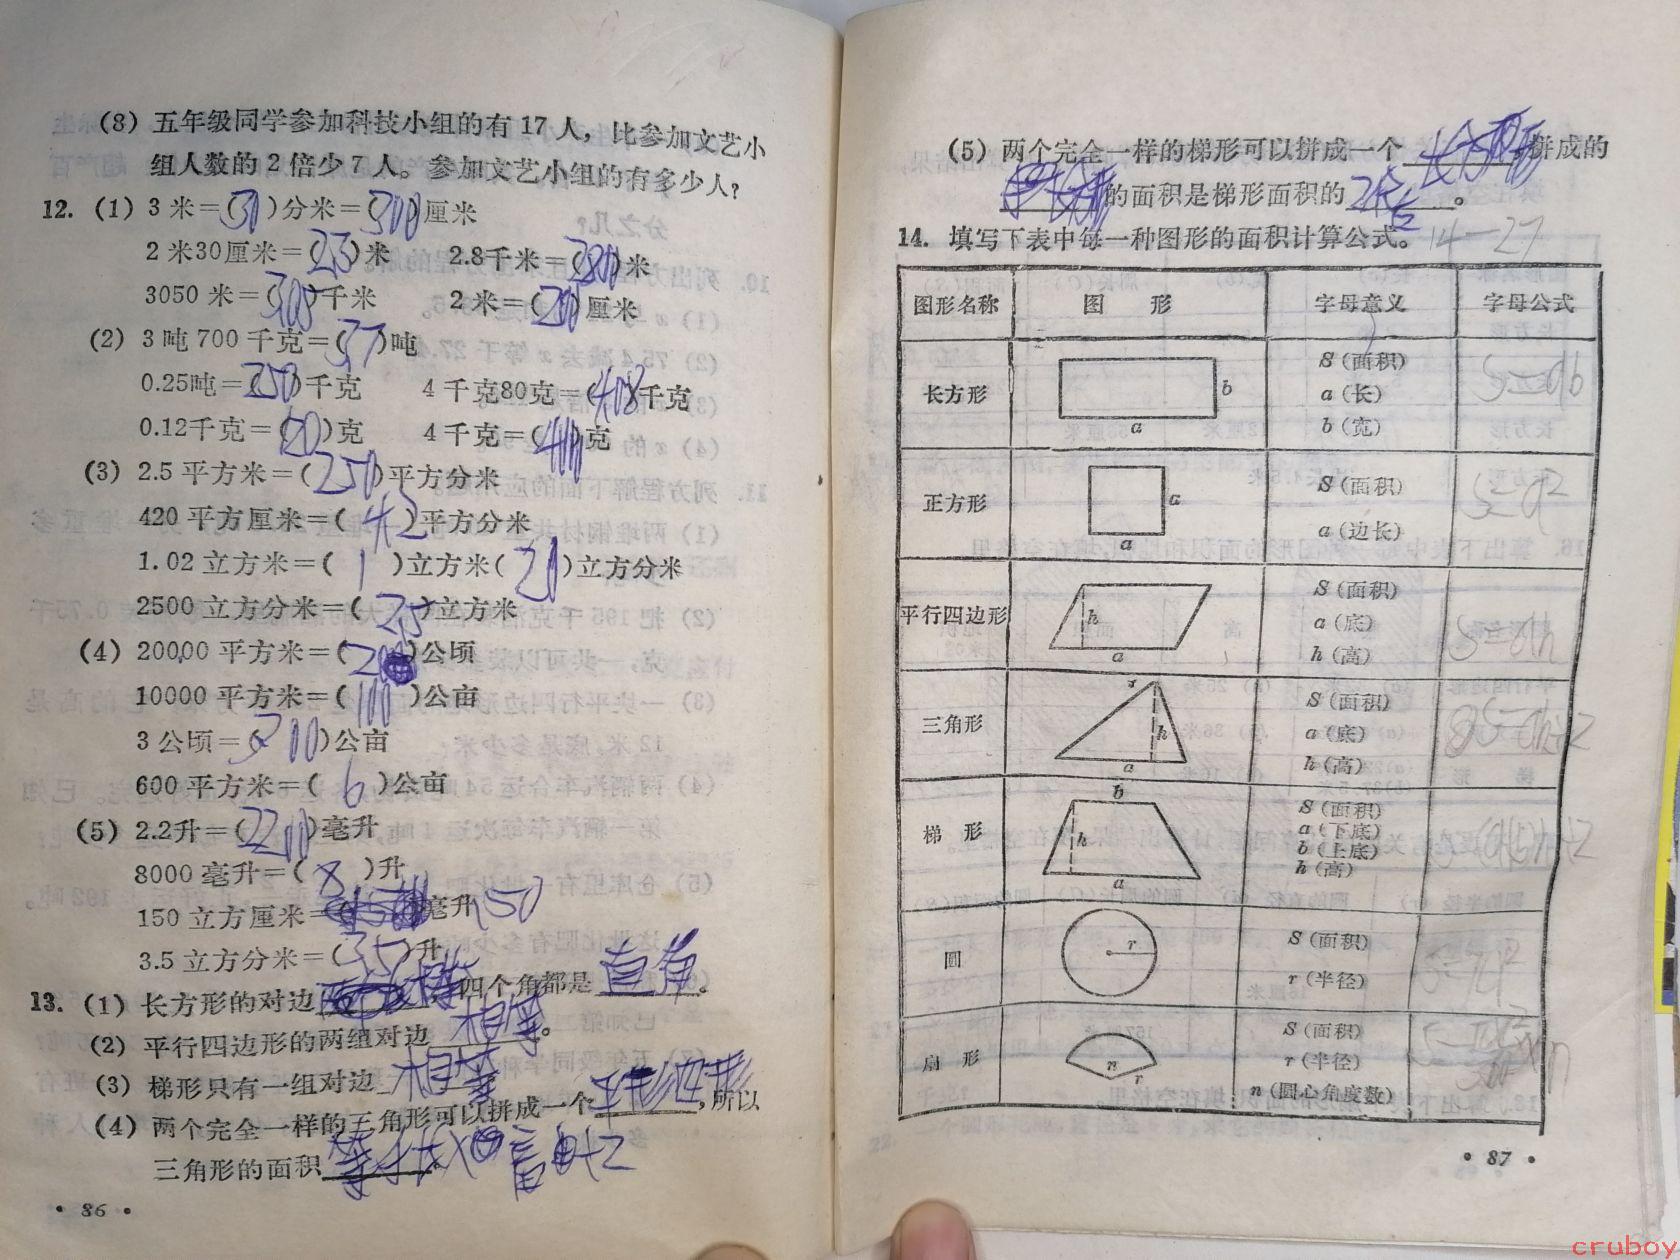 (8) 五年级同学参加科技小组的有17人，比参加文艺小
组人数的2倍少7人。参加文艺小组的有多少人?
12. (1) 3米=(30)分米=(300)厘米
2米30厘米=(2.3)米 2.8千米=(2800)米
3050米=()千米 2米=(200)厘米
(2) 3吨700千克=(3.7)吨
0.25吨=(250)千克 4千克80克=(4.08)千克
0.12千克=(120)克 4千克=()克
(3) 2.5平方米=(250)平方分米
420平方厘米=(4.2)平方分米
1.02立方米=(1)立方米(20)立方分米
2500立方分米=(2.5)立方米
(4) 20000平方米=()公顷
10000平方米=(100)公亩
3公顷=(300)公亩
600平方米=(6)公亩
(5) 2.2升=(2200)毫升
8000毫升=(8)升
150立方厘米=()毫升 150
3.5立方分米=(3.5)升
13. (1) 长方形的对边，四个角都是直角。
(2) 平行四边形的两组对边相等。
(3) 梯形只有一组对边相等
(4) 两个完全一样的三角形可以拼成一个，所以
三角形的面积
• 86 •
(5) 两个完全一样的梯形可以拼成一个拼成的
的面积是梯形面积的。
14. 填写下表中每一种图形的面积计算公式。 14-27
图形名称 图形 字母意义 字母公式
长方形 b a S(面积) a(长) b(宽) S=ab
正方形 a a S(面积) a(边长) S=a²
平行四边形 h a S(面积) a(底) h(高) S=ah
三角形 h a S(面积) a(底) h(高) S=ah÷2
梯形 b h a S(面积) a(下底) b(上底) h(高)
圆 r S(面积) r(半径)
扇形 n r S(面积) r(半径) n(圆心角度数)
• 87 •
cruboy